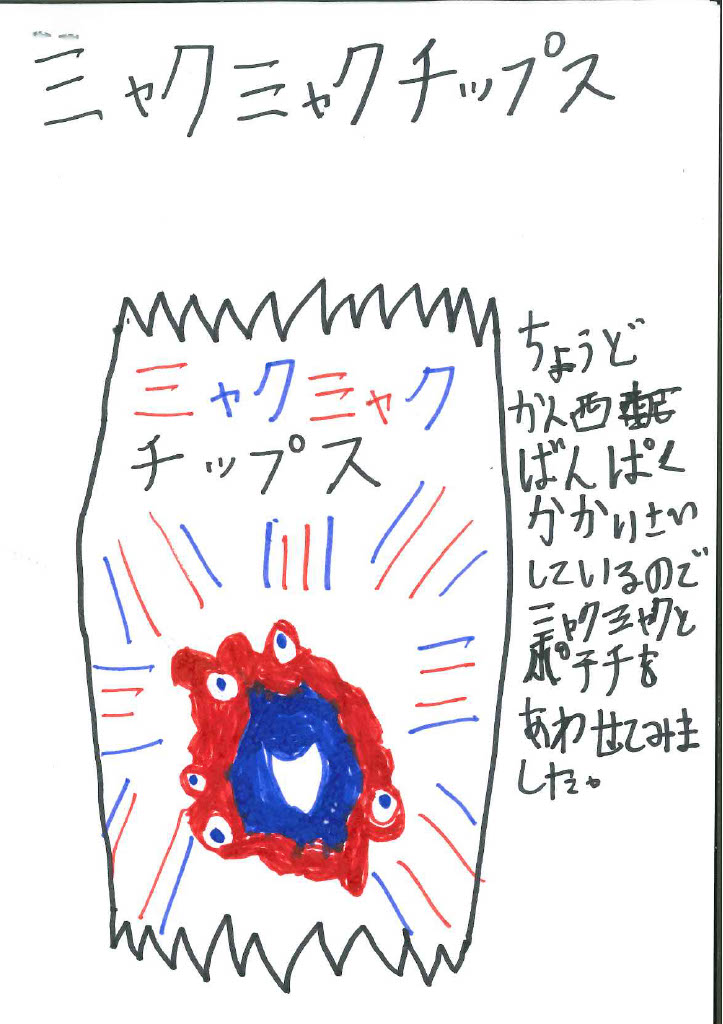 ミャクミャクチップス
ミャクミャク
チップス
ちょうど
かん西
ばんぱく
がかいさい
しているので
ミャクミャクと
ポテチを
あわせてみま
した。